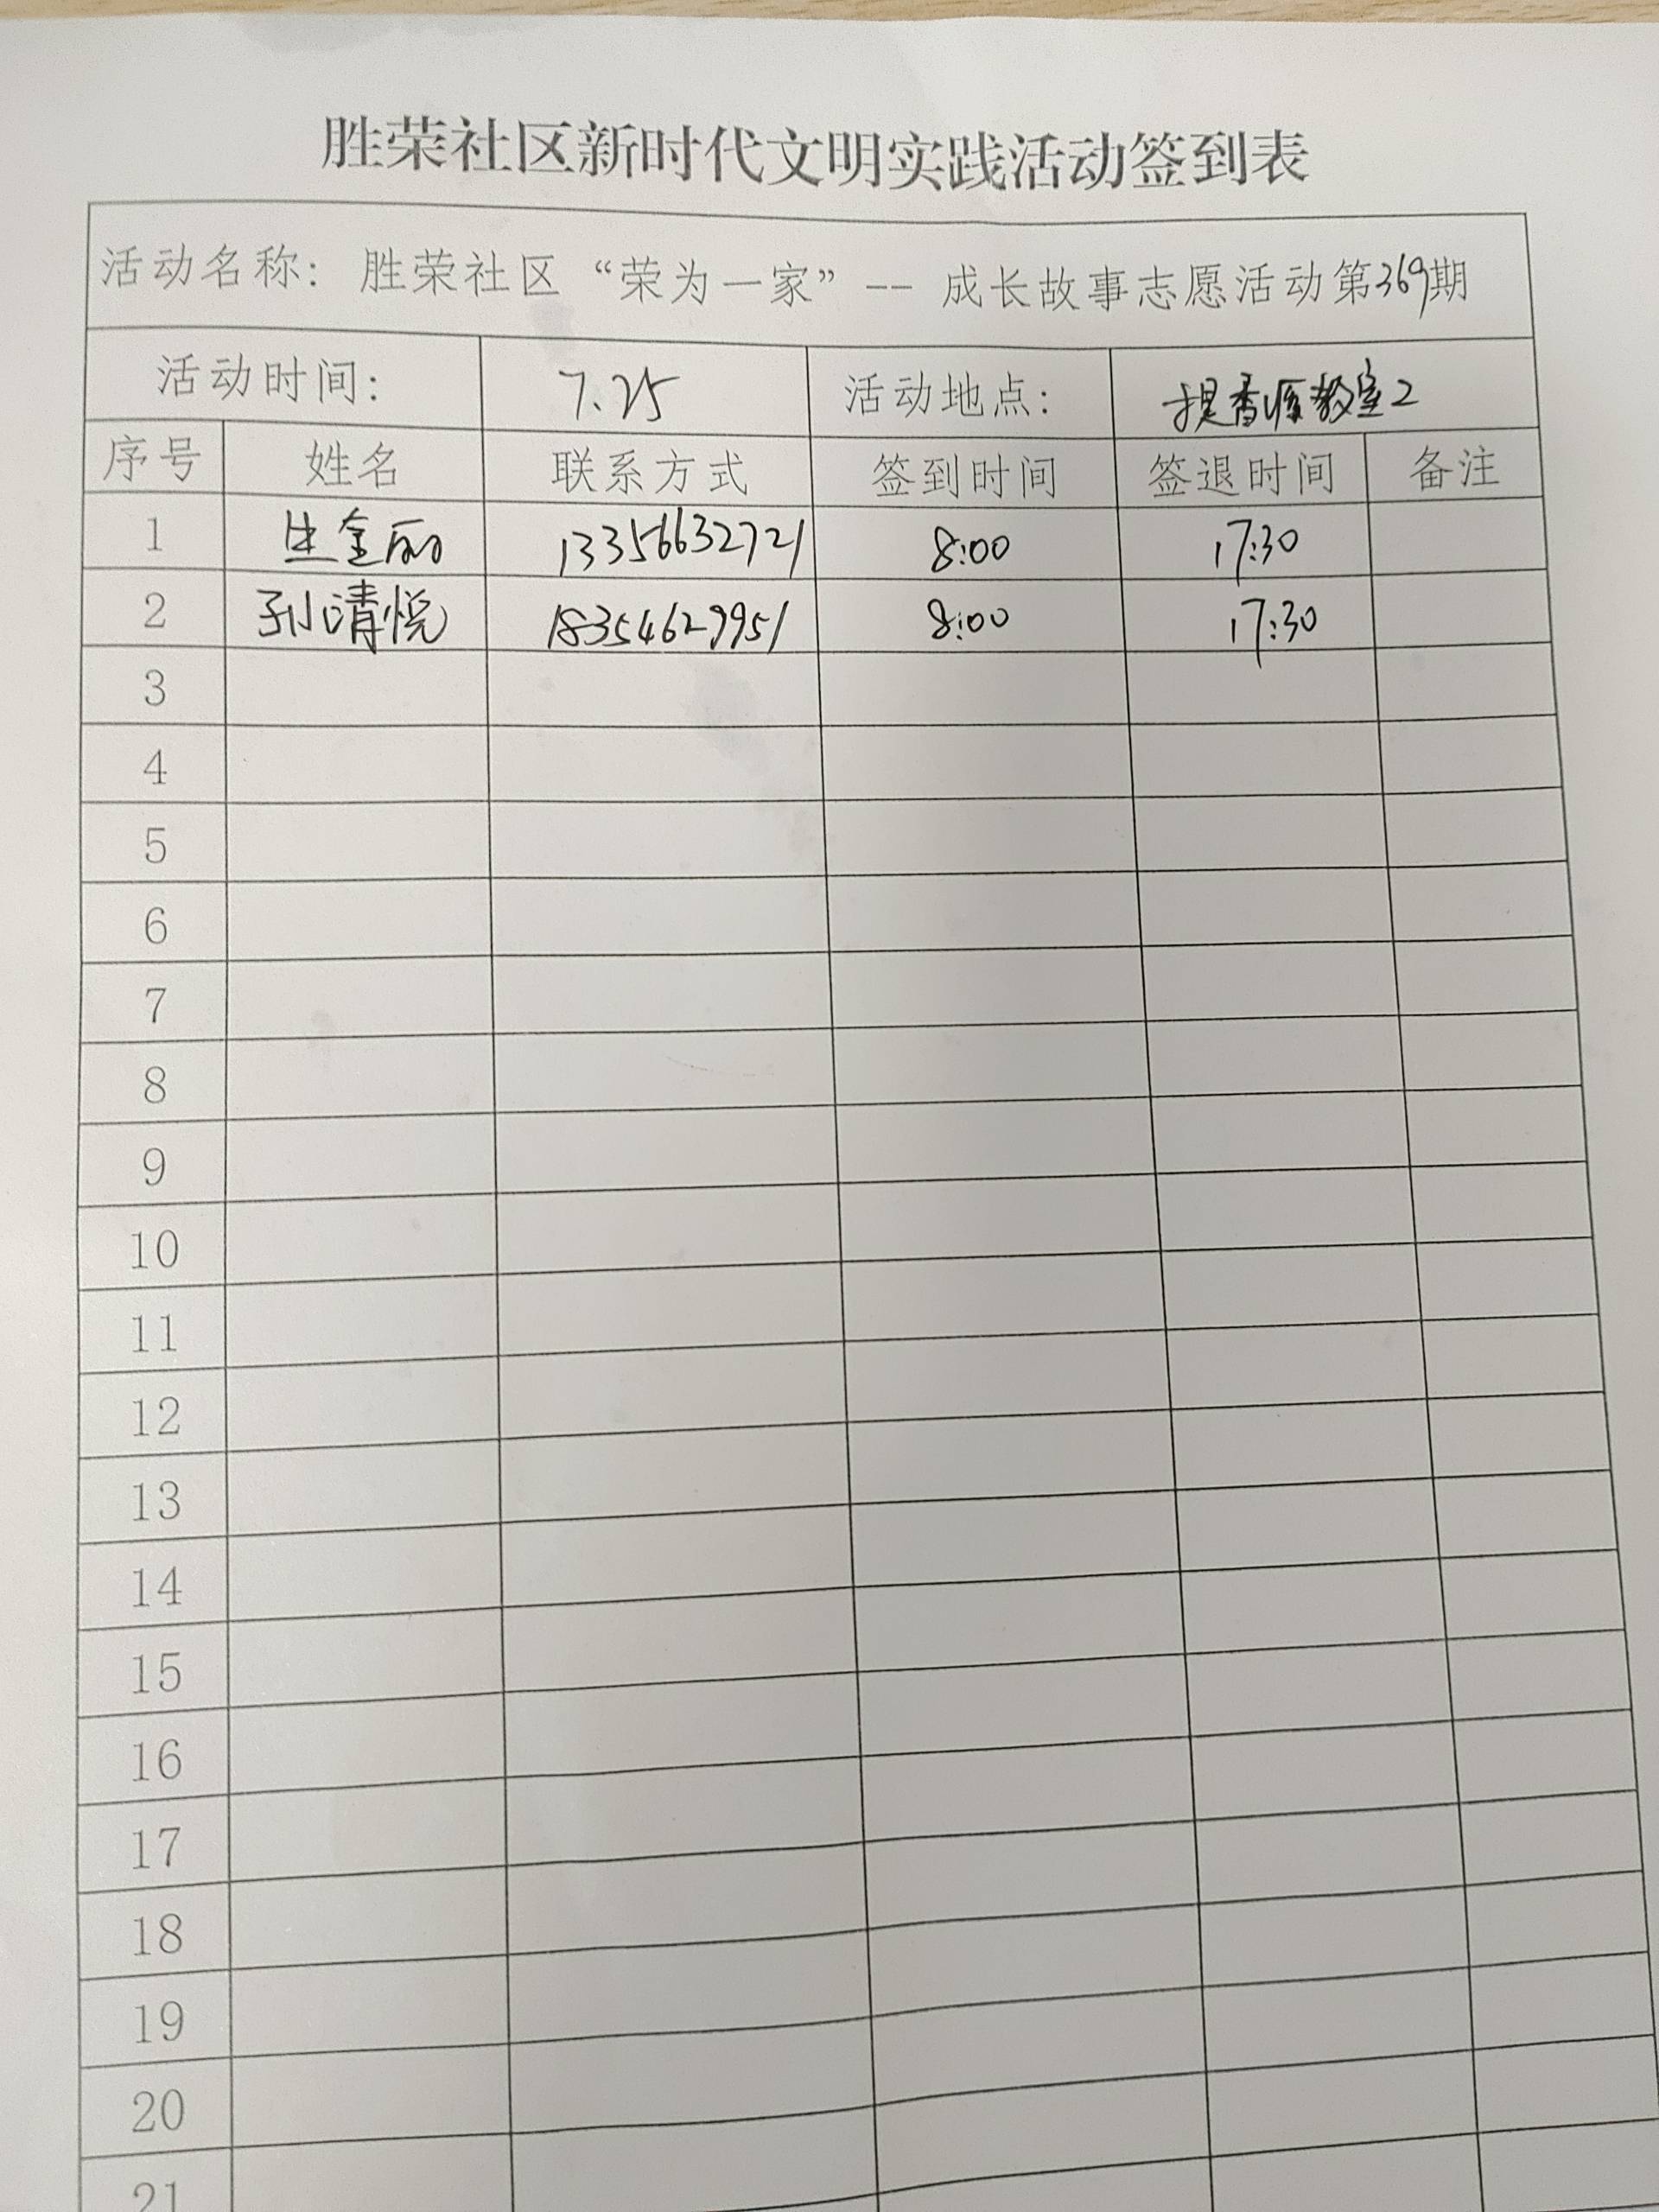 胜荣社区新时代文明实践活动签到表
活动名称：胜荣社区“荣为一家”--成长故事志愿活动第369期
活动时间： 7.25 活动地点： 提香溪教室2
序号 姓名 联系方式 签到时间 签退时间 备注
1 生金丽 13356632721 8:00 17:30
2 孙清悦 18354629951 8:00 17:30
3
4
5
6
7
8
9
10
11
12
13
14
15
16
17
18
19
20
21